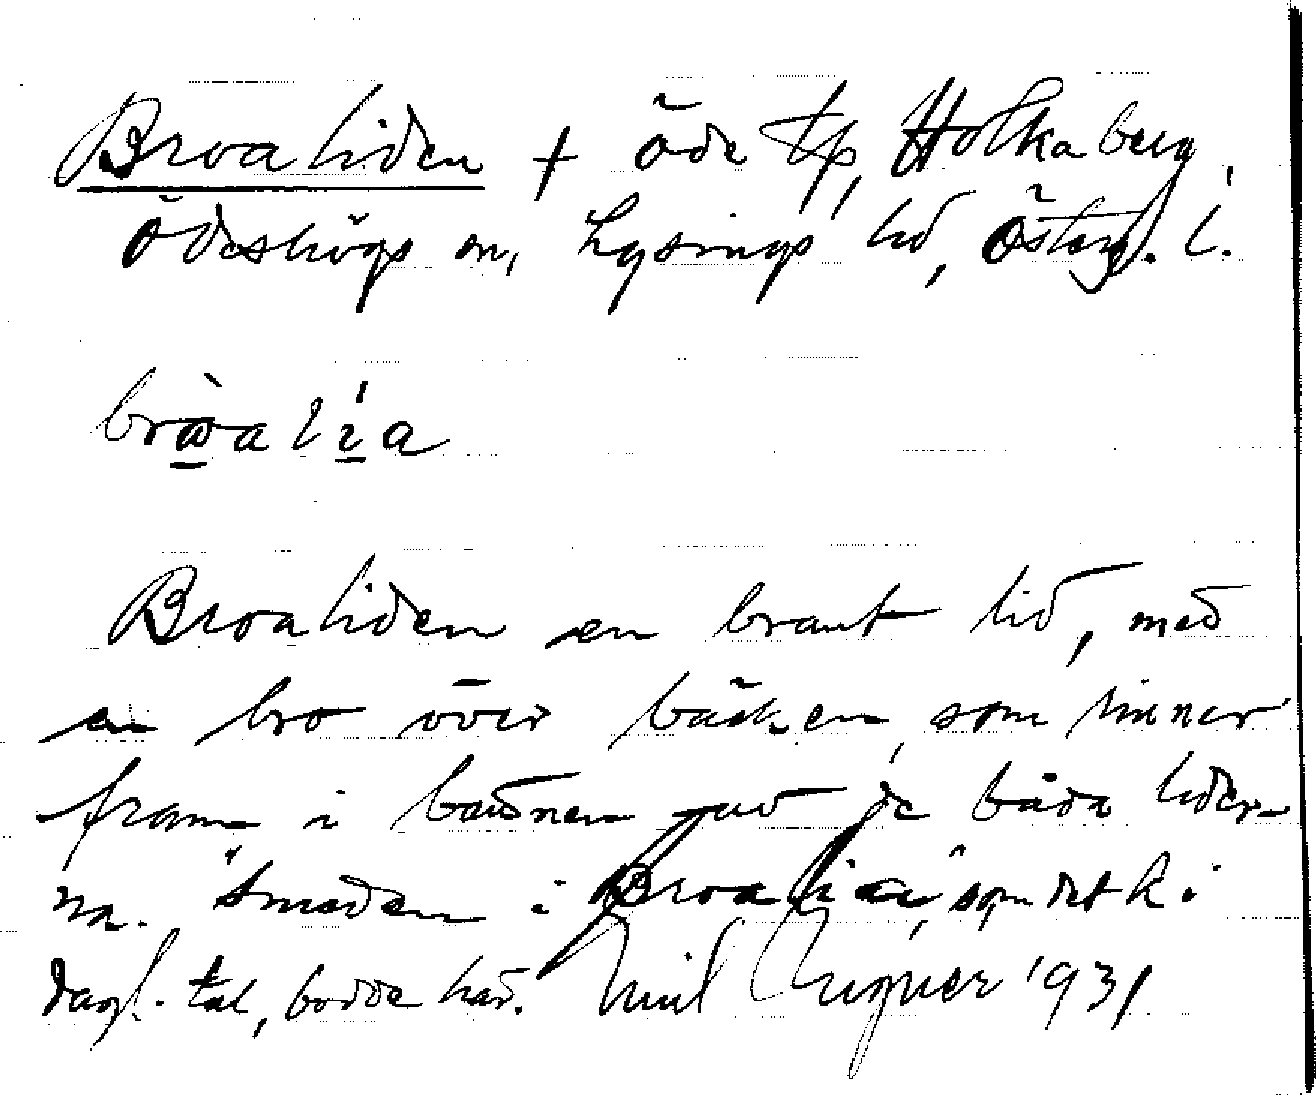 Broaliden † öde tp, Holkaberg,
Ödeshögs sn, Lysings hd, Östergl. l.
bròa lía
Broaliden en brant lid, med
en bro över bäcken, som rinner
fram i bottnen av de båda lider-
na. "Smeden i Broalia", som det h i
dagl. tal, bodde här. Emil 1931